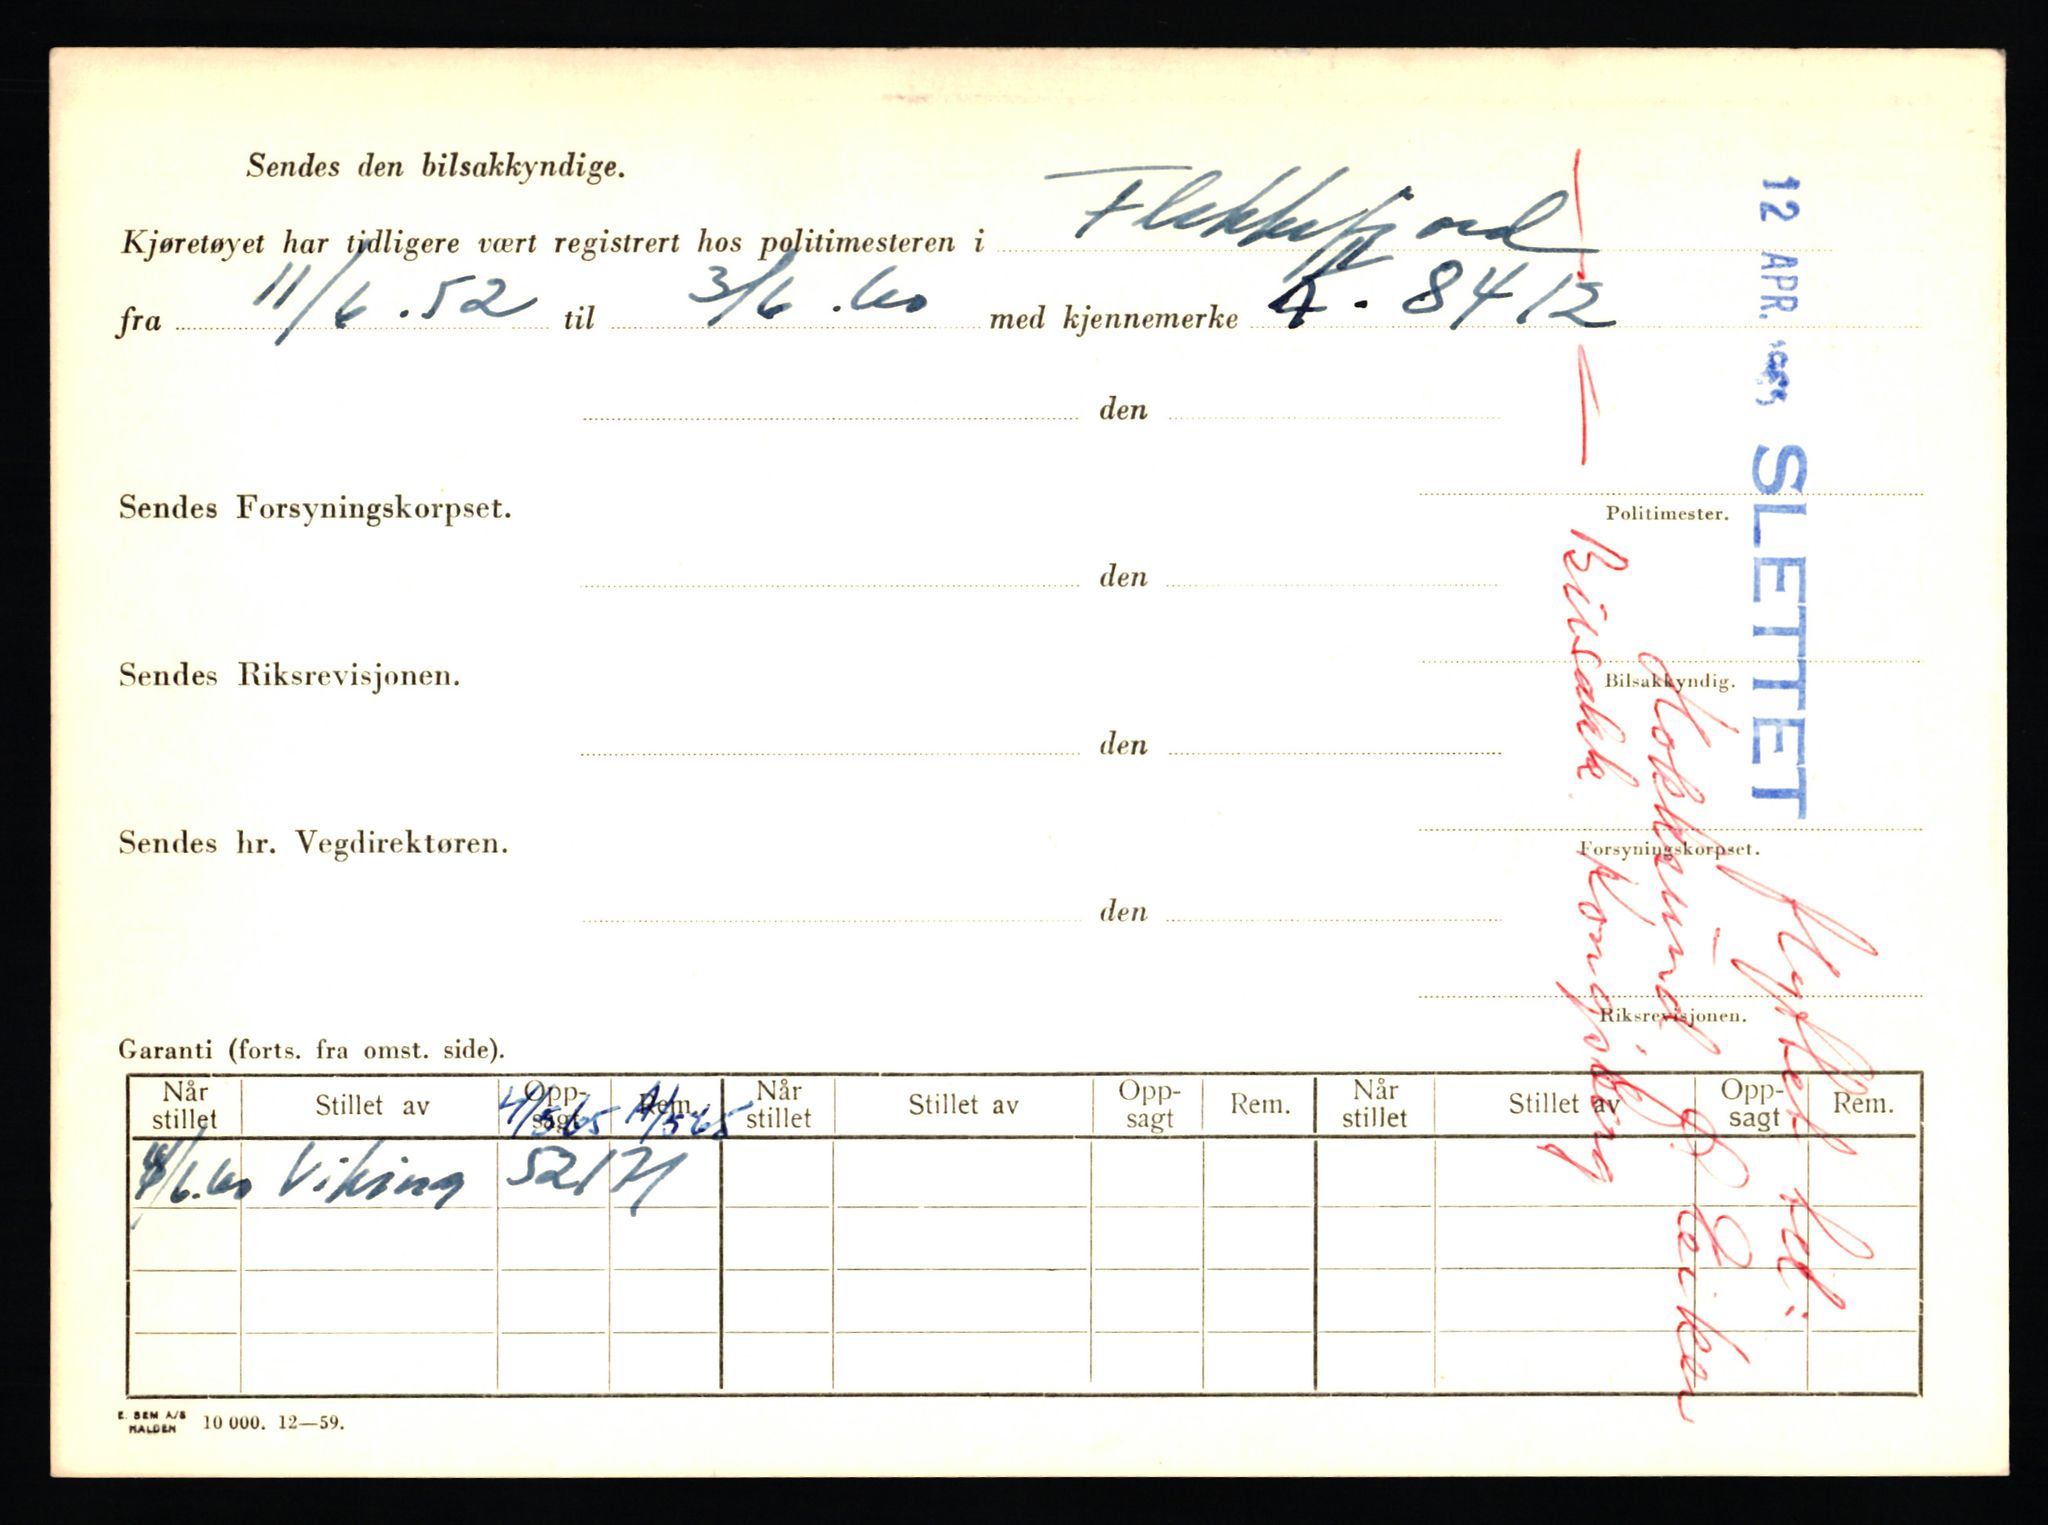 Sendes den bilsakkyndige.
Kjøretøyet har tidligere vært registrert hos politimesteren i Flekkefjord
fra 11/6.52 til 3/6.60 med kjennemerke 8412
den
Politimester.
Sendes Forsyningskorpset.
den
Bilsakkyndig.
Sendes Riksrevisjonen.
den
Forsyningskorpset.
Sendes hr. Vegdirektøren.
den
Riksrevisjonen.
Garanti (forts. fra omst. side).
Når stillet Stillet av Opp-sagt Rem. Når stillet Stillet av Opp-sagt Rem. Når stillet Stillet av Opp-sagt Rem.
4/5 65
/6.60 Viking 52171
E. SEM A/S
HALDEN
10 000. 12—59.
12 APR. SLETTET
Flyttet til:
Hokksund Ø. Eiker
Bilsakk. Kongsberg